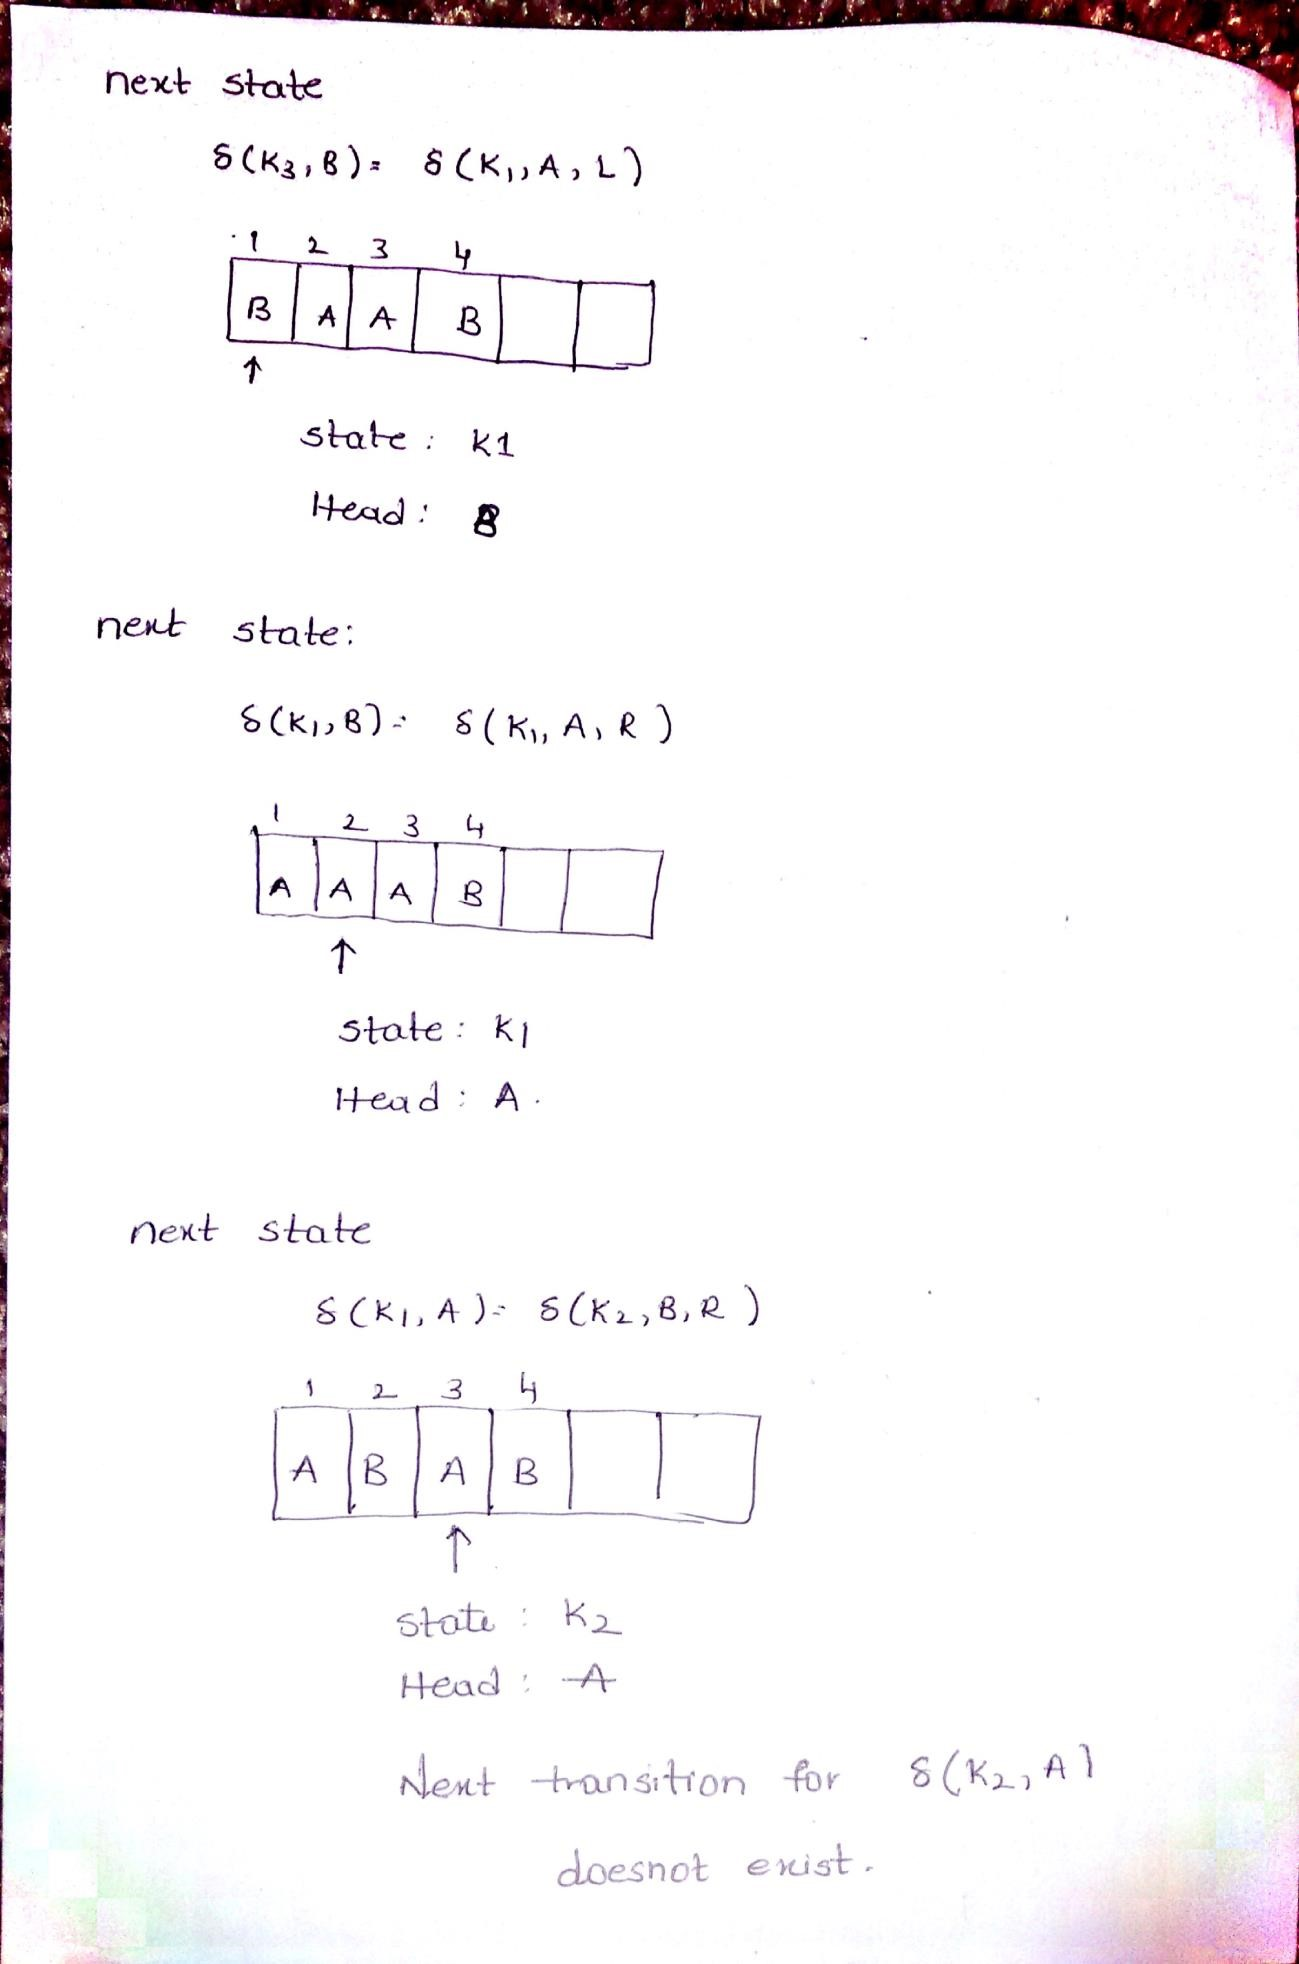 next state
δ(K3, B) = δ(K1,, A, L)
1 2 3 4
B A A B
↑
state : K1
Head : B
next state:
δ(K1, B) = δ(K1,, A, R )
1 2 3 4
A A A B
↑
state : K1
Head : A.
next state
δ(K1, A ) = δ(K2, B, R )
1 2 3 4
A B A B
↑
state : K2
Head : A
Next transition for δ(K2, A)
doesnot exist.